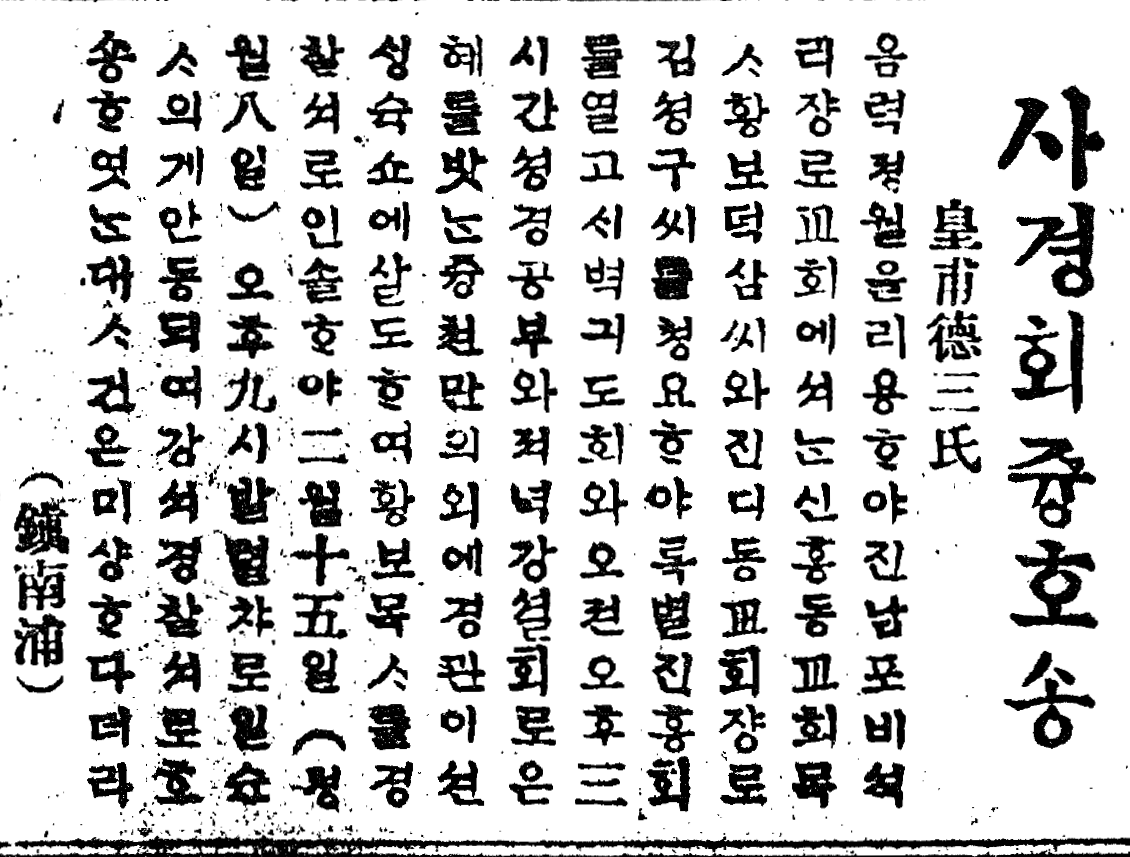 사경회즁호송
皇甫德三氏
음력졍월운리용ᄒᆞ야진남포비셕
리쟝로교회에셔ᄂᆞᆫ신흥동교회목
ᄉᆞ황보덕삼씨와진디동교회쟝로
김셩구씨를쳥요ᄒᆞ야특별진흥회
를열고시벽긔도회와오젼오후三
시간셩경공부와져녁강셜회로은
헤를밧ᄂᆞᆫ즁쳔만의외에경관이션
셩슉쇼에살도ᄒᆞ여황보목ᄉᆞ를경
찰셔로인솔ᄒᆞ야二월十五일(졍
월八일)오후九시발렬챠로일슌
ᄉᆞ의게안동되여강셔경찰셔로호
송ᄒᆞ엿ᄂᆞᆫ대ᄉᆞ건은미샹ᄒᆞ다더라
(鎭南浦)